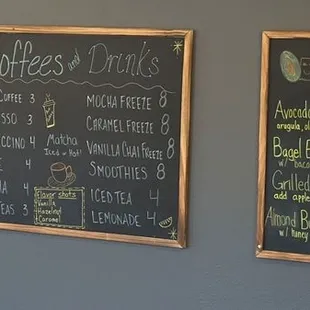 offees and Drinks
OFFEE 3
SSO 3
CCINO 4
I 4
HA 4
TEAS 3
Matcha
Iced or Hot!
Flavor shots
Vanilla
Hazelnut
Caramel
MOCHA FREEZE 8
CARAMEL FREEZE 8
VANILLA CHAI FREEZE 8
SMOOTHIES 8
ICED TEA 4
LEMONADE 4
Avocado
arugula, ol
Bagel B
w/ baco
Grilled
add apple
Almond B
w/ honey